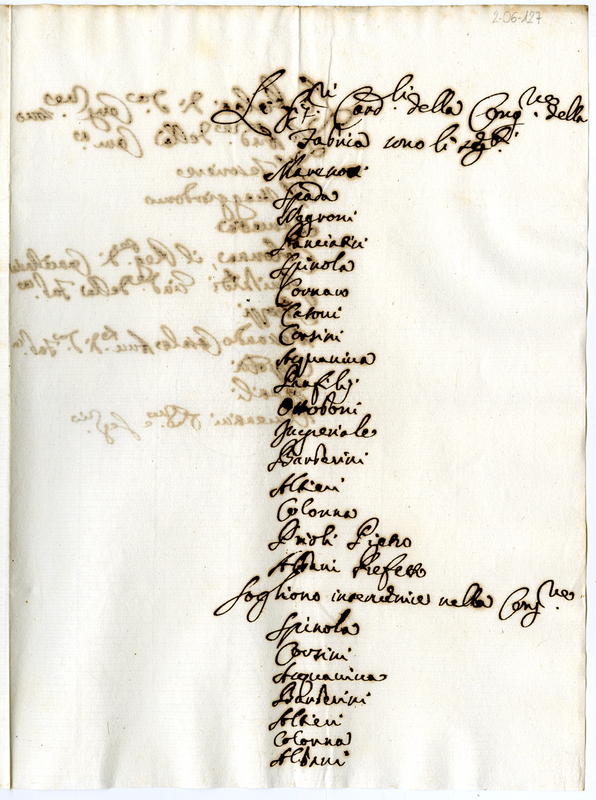 2-06-127
Li Sig.ri Card.li della Cong.ne della
Fabrica sono li seg.ti
Marescotti
Spada
Negroni
Panciatici
Spinola
Cornaro
Casoni
Corsini
Acquaviva
Panfilj
Ottoboni
Imperiale
Barberini
Altieri
Colonna
Prioli Pietro
Albani Prefetto
Sogliono intervenire nella Cong.ne
Spinola
Corsini
Acquaviva
Barberini
Altieri
Colonna
Albani